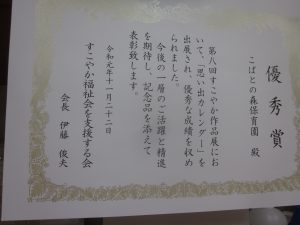 優秀賞
こばとの森保育園 殿
第八回すこやか作品展にお
いて、「思い出カレンダー」を
出展され、優秀な成績を収め
られました。
今後の一層のご活躍と精進
を期待し、記念品を添えて
表彰致します。
令和元年十一月二十二日
すこやか福祉会を支援する会
会長 伊藤 俊夫